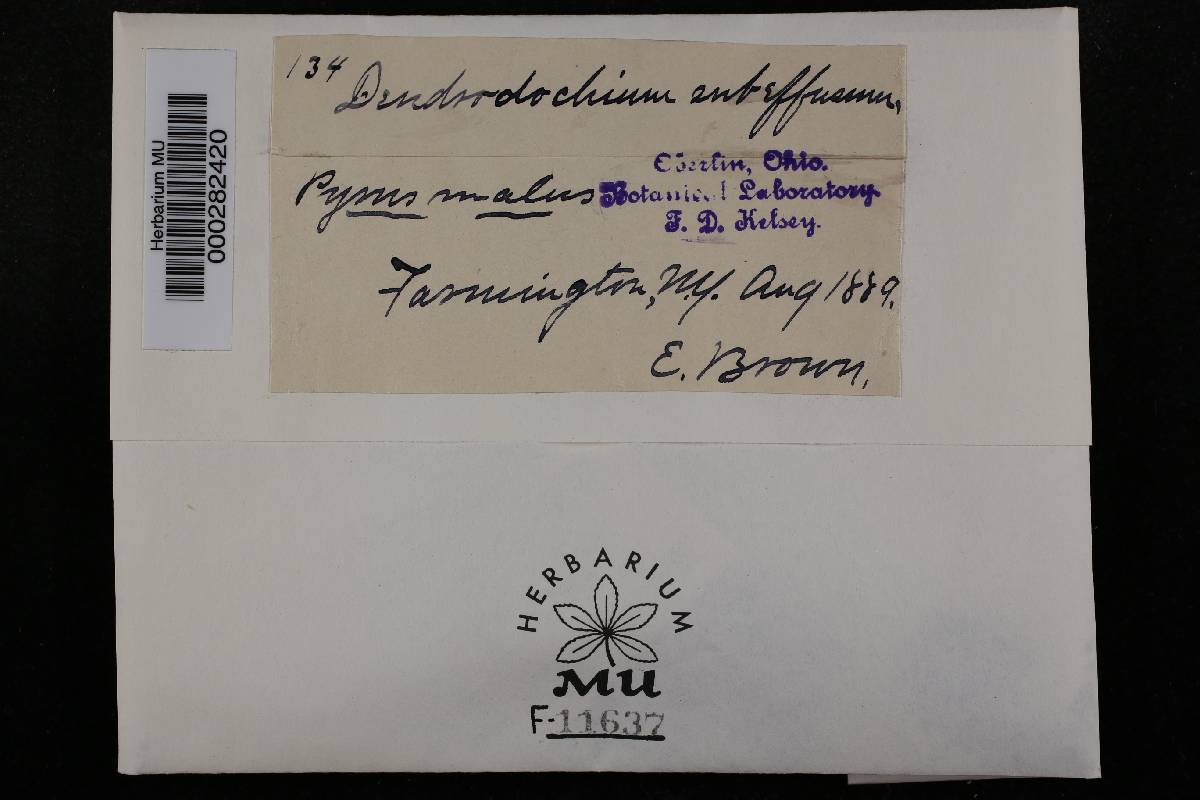 Herbarium MU
000282420
134
Dendrodochium subeffusum,
Pyrus malus
Oberlin, Ohio.
Botanical Laboratory.
F. D. Kelsey.
Farmington, N.Y. Aug 1889.
E. Brown,
HERBARIUM
MU
F-11637